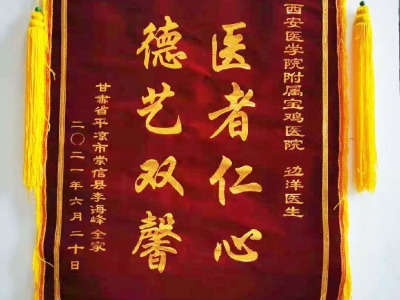 西安医学院附属宝鸡医院 边洋医生
医者仁心
德艺双馨
甘肃省平凉市崇信县李海峰全家
二〇二一年六月二十日